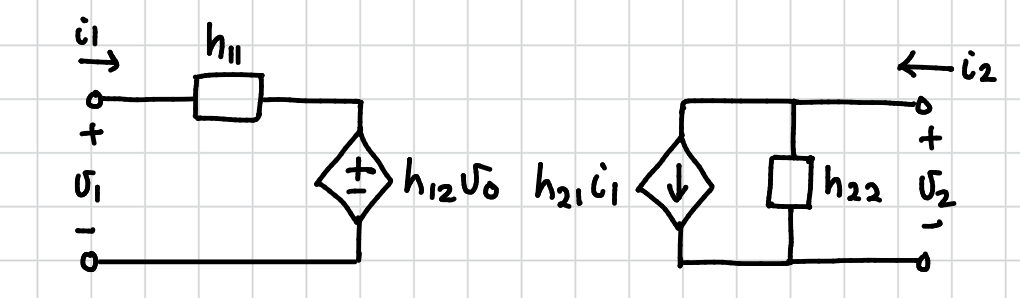 i1
h11
+
v1
-
+
-
h12v0
h21i1
i2
h22
+
v2
-